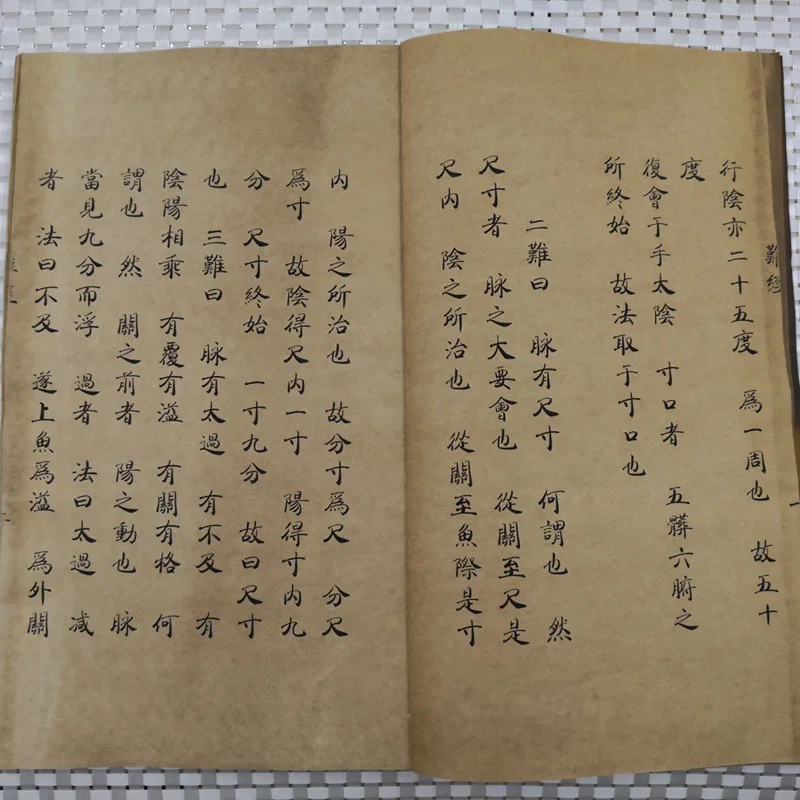 難經
行陰亦二十五度 爲一周也 故五十
度
復會于手太陰 寸口者 五臟六腑之
所終始 故法取于寸口也
二難曰 脉有尺寸 何謂也 然
尺寸者 脉之大要會也 從關至尺是
尺内 陰之所治也 從關至魚際是寸
内 陽之所治也 故分寸爲尺 分尺
爲寸 故陰得尺内一寸 陽得寸内九
分 尺寸終始 一寸九分 故曰尺寸
也 三難曰 脉有太過 有不及 有
陰陽相乘 有覆有溢 有關有格 何
謂也 然 關之前者 陽之動也 脉
當見九分而浮 過者 法曰太過 减
者 法曰不及 遂上魚爲溢 爲外關